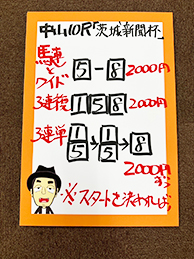 中山10R「茨城新聞杯」
馬連とワイド 5-8 2000円
3連複 1 5 8 2000円
3連単 1/5→1/5→8 2000円ずつ
※スタートを決われば!